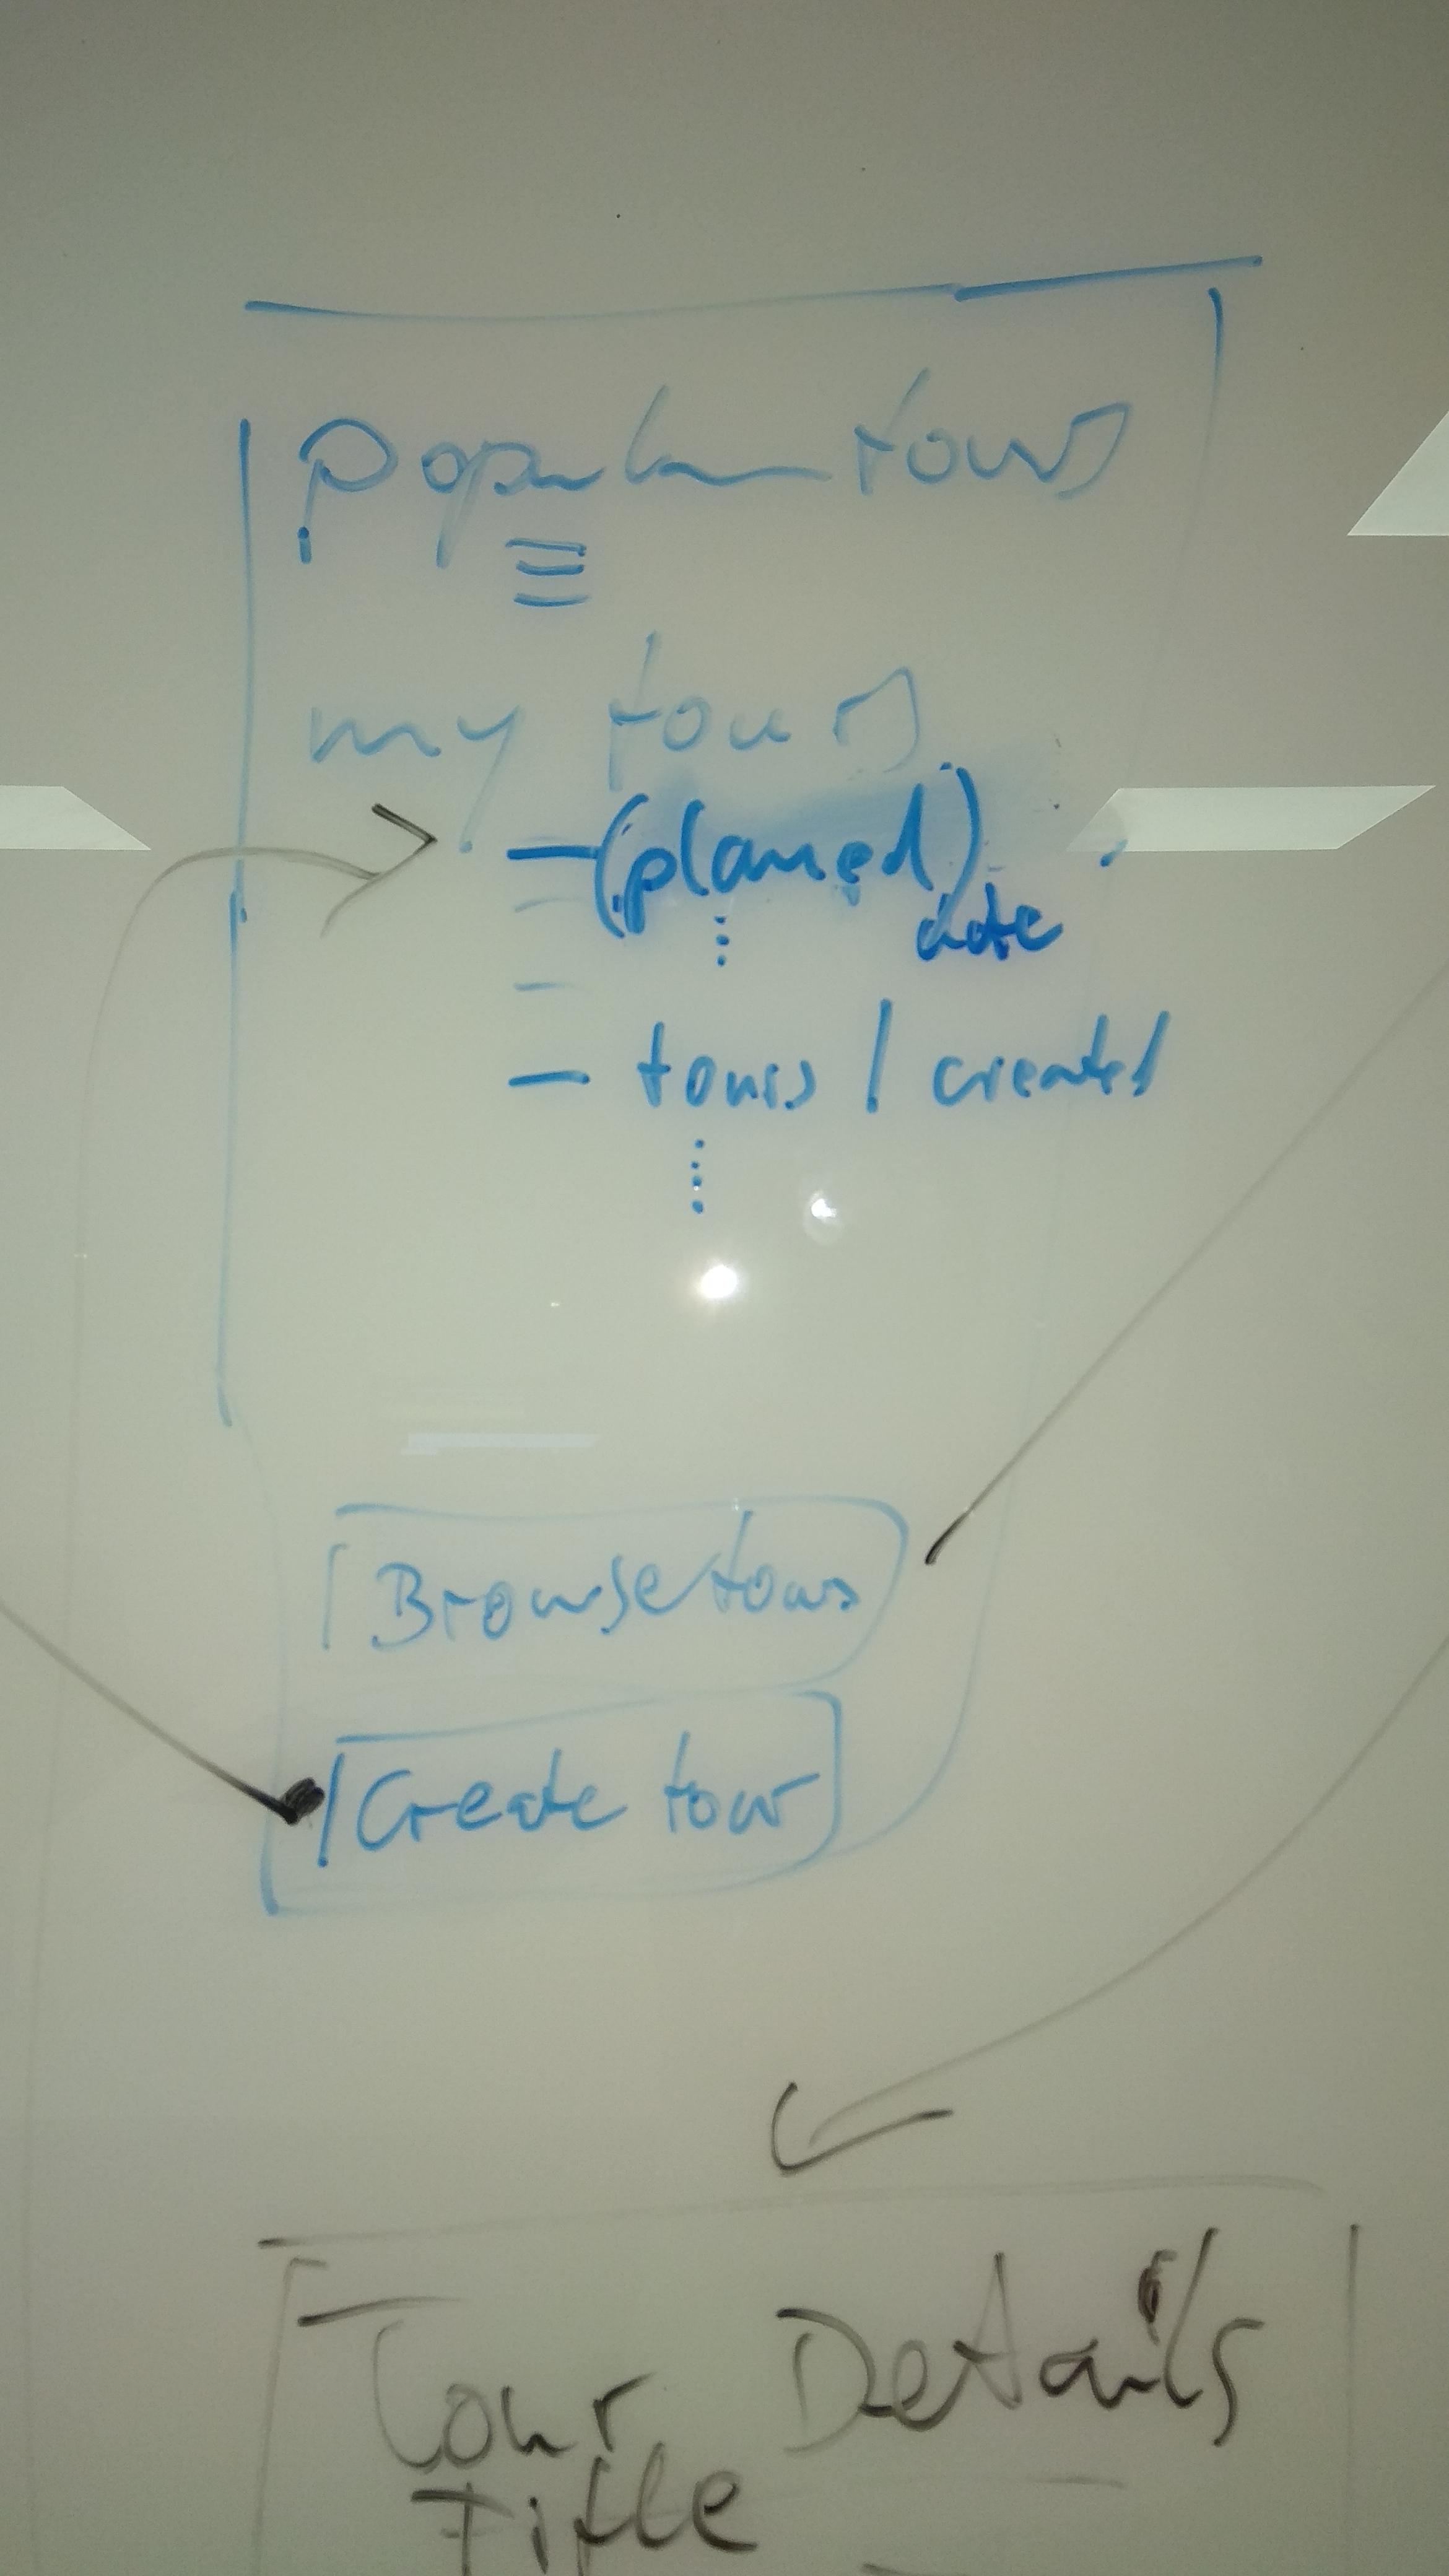 popular tours
my tours
– (planned)
date
– tours / created
Browse tours
Create tour
Tour Details
Title